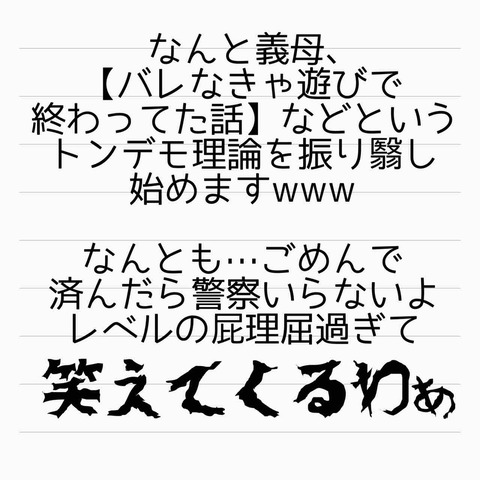 なんと義母、
【バレなきゃ遊びで
終わってた話】などという
トンデモ理論を振り翳し
始めますwww
なんとも…ごめんで
済んだら警察いらないよ
レベルの屁理屈過ぎて
笑えてくるわぁ